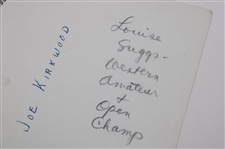 Louise
Suggs-
Western
Amateur
+
Open
Champ
JOE KIRKWOOD